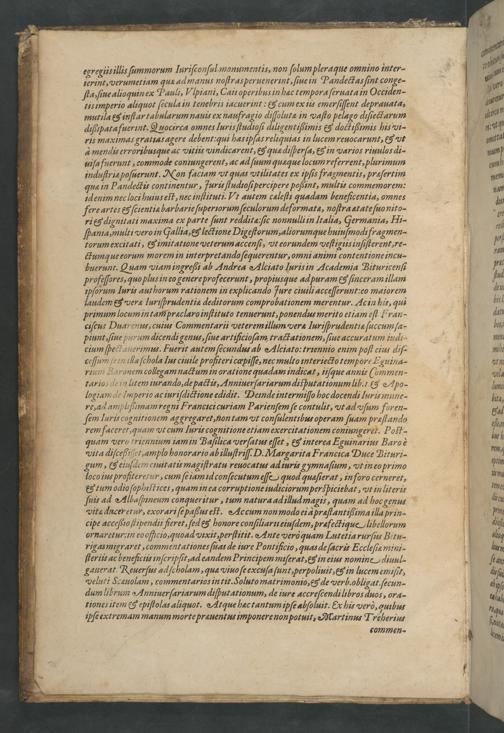 egregiis illis summorum Iurisconsul. monumentis, non solum pleraque omnino inter-
ierint, verumetiam quæ ad manus nostras peruenerint, siue in Pandectas sint conge-
sta, siue alioquin ex Pauli, Vlpiani, Caii operibus in hæc tempora seruata in Occiden-
tis imperio aliquot secula in tenebris iacuerint: & cum ex iis emersissent deprauata,
mutila & instar tabularum nauis ex naufragio dissoluta in vasto pelago disiectarum
dissipata fuerint. Quocirca omnes Iuris studiosi diligentissimis & doctissimis his vi-
ris maximas gratias agere debent: qui has ipsas reliquias in lucem reuocarint, & vt
à mendis erroribusque ac vitiis vindicarent, & quæ dispersa, & in varios riuulos di-
uisa fuerunt, commode coniungerent, ac ad suum quæque locum referrent, plurimum
industria posuerunt. Non faciam vt quas vtilitates ex ipsis fragmentis, præsertim
quæ in Pandectis continentur, Iuris studiosi percipere possint, multis commemorem:
id enim nec loci huius est, nec instituti. Vt autem cælesti quadam beneficentia, omnes
fere artes & scientia barbarie superiorum seculorum deformata, nostra ætate suo nito-
ri & dignitati maxima ex parte sunt reddita: sic nonnulli in Italia, Germania, Hi-
spania, multi vero in Gallia, & lectione Digestorum, aliorumque huiusmodi fragmen-
torum excitati, & imitatione veterum accensi, vt eorundem vestigiis insisterent, re-
ctumque eorum morem in interpretando sequerentur, omni animi contentione incu-
buerunt. Quam viam ingressi ab Andrea Alciato Iuris in Academia Bituricensi
professores, quo plus in eo genere profecerunt, propiusque ad puram & sinceram illam
ipsorum Iuris authorum rationem in explicando Iure ciuili accesserunt: eo maiorem
laudem & vera Iurisprudentia deditorum comprobationem merentur. Ac in his, qui
primum locum in tam præclaro instituto tenuerunt, ponendus merito etiam est Fran-
ciscus Duarenus, cuius Commentarii veterem illum vera Iurisprudentia succum sa-
piunt, siue purum dicendi genus, siue artificiosam tractationem, siue accuratum iudi-
cium spectauerimus. Fuerit autem secundus ab Alciato: triennio enim post eius dis-
cessum in illa schola Ius ciuile profiteri cœpisse, nec multo interiecto tempore Eguina-
rium Baronem collegam nactum in oratione quadam indicat, iisque annis Commen-
tarios de in litem iurando, de pactis, Anniuersariarum disputationum lib. 1 & Apo-
logiam de Imperio ac iurisdictione edidit. Deinde intermisso hoc docendi Iuris mune-
re, ad amplissimam regni Francici curiam Pariensem se contulit, vt ad vsum foren-
sem Iuris cognitionem aggregaret, non tam vt consulentibus operam suam præstando
rem faceret, quam vt cum Iuris cognitione etiam exercitationem coniungeret. Post-
quam vero triennium iam in Basilica versatus esset, & interea Eguinarius Baro è
vita discessisset, amplo honorario ab illustriss. D. Margarita Francica Duce Bituri-
gum, & eiusdem ciuitatis magistratu reuocatus ad iuris gymnasium, vt in eo primo
loco ius profiteretur, cum se iam id consecutum esse, quod quæsierat, in foro cerneret,
& tum odio sophistices, quam in ea corruptione iudiciorum perspiciebat, vt in literis
suis ad Albaspineum conqueritur, tum natura ad illud magis, quam ad hoc genus
vitæ duceretur, exorari se passus est. Accum non modo ei à præstantissima illa prin-
cipe accessio stipendii fieret, sed & honore consiliarii eiusdem, præfectique libellorum
ornaretur: in eo officio, quoad vixit, perstitit. Ante verò quam Lutetia rursus Bitu-
rigas migraret, commentationes suas de iure Pontificio, quas de sacris Ecclesiæ mini-
steriis ac beneficiis inscripsit, ad eandem Principem miserat, & in eius nomine diuul-
gauerat. Reuersus ad scholam, quæ viuo se excusa sunt, perpoliuit, & in lucem emisit,
veluti Scæuolam, commentarios in tit. Soluto matrimonio, & de verb. obligat. secun-
dum librum Anniuersariarum disputationum, de iure accrescendi libros duos, ora-
tiones item & epistolas aliquot. Atque hæc tantum ipse absoluit. Ex his verò, quibus
ipse extremam manum morte præuentus imponere non potuit, Martinus Treherius
commen-